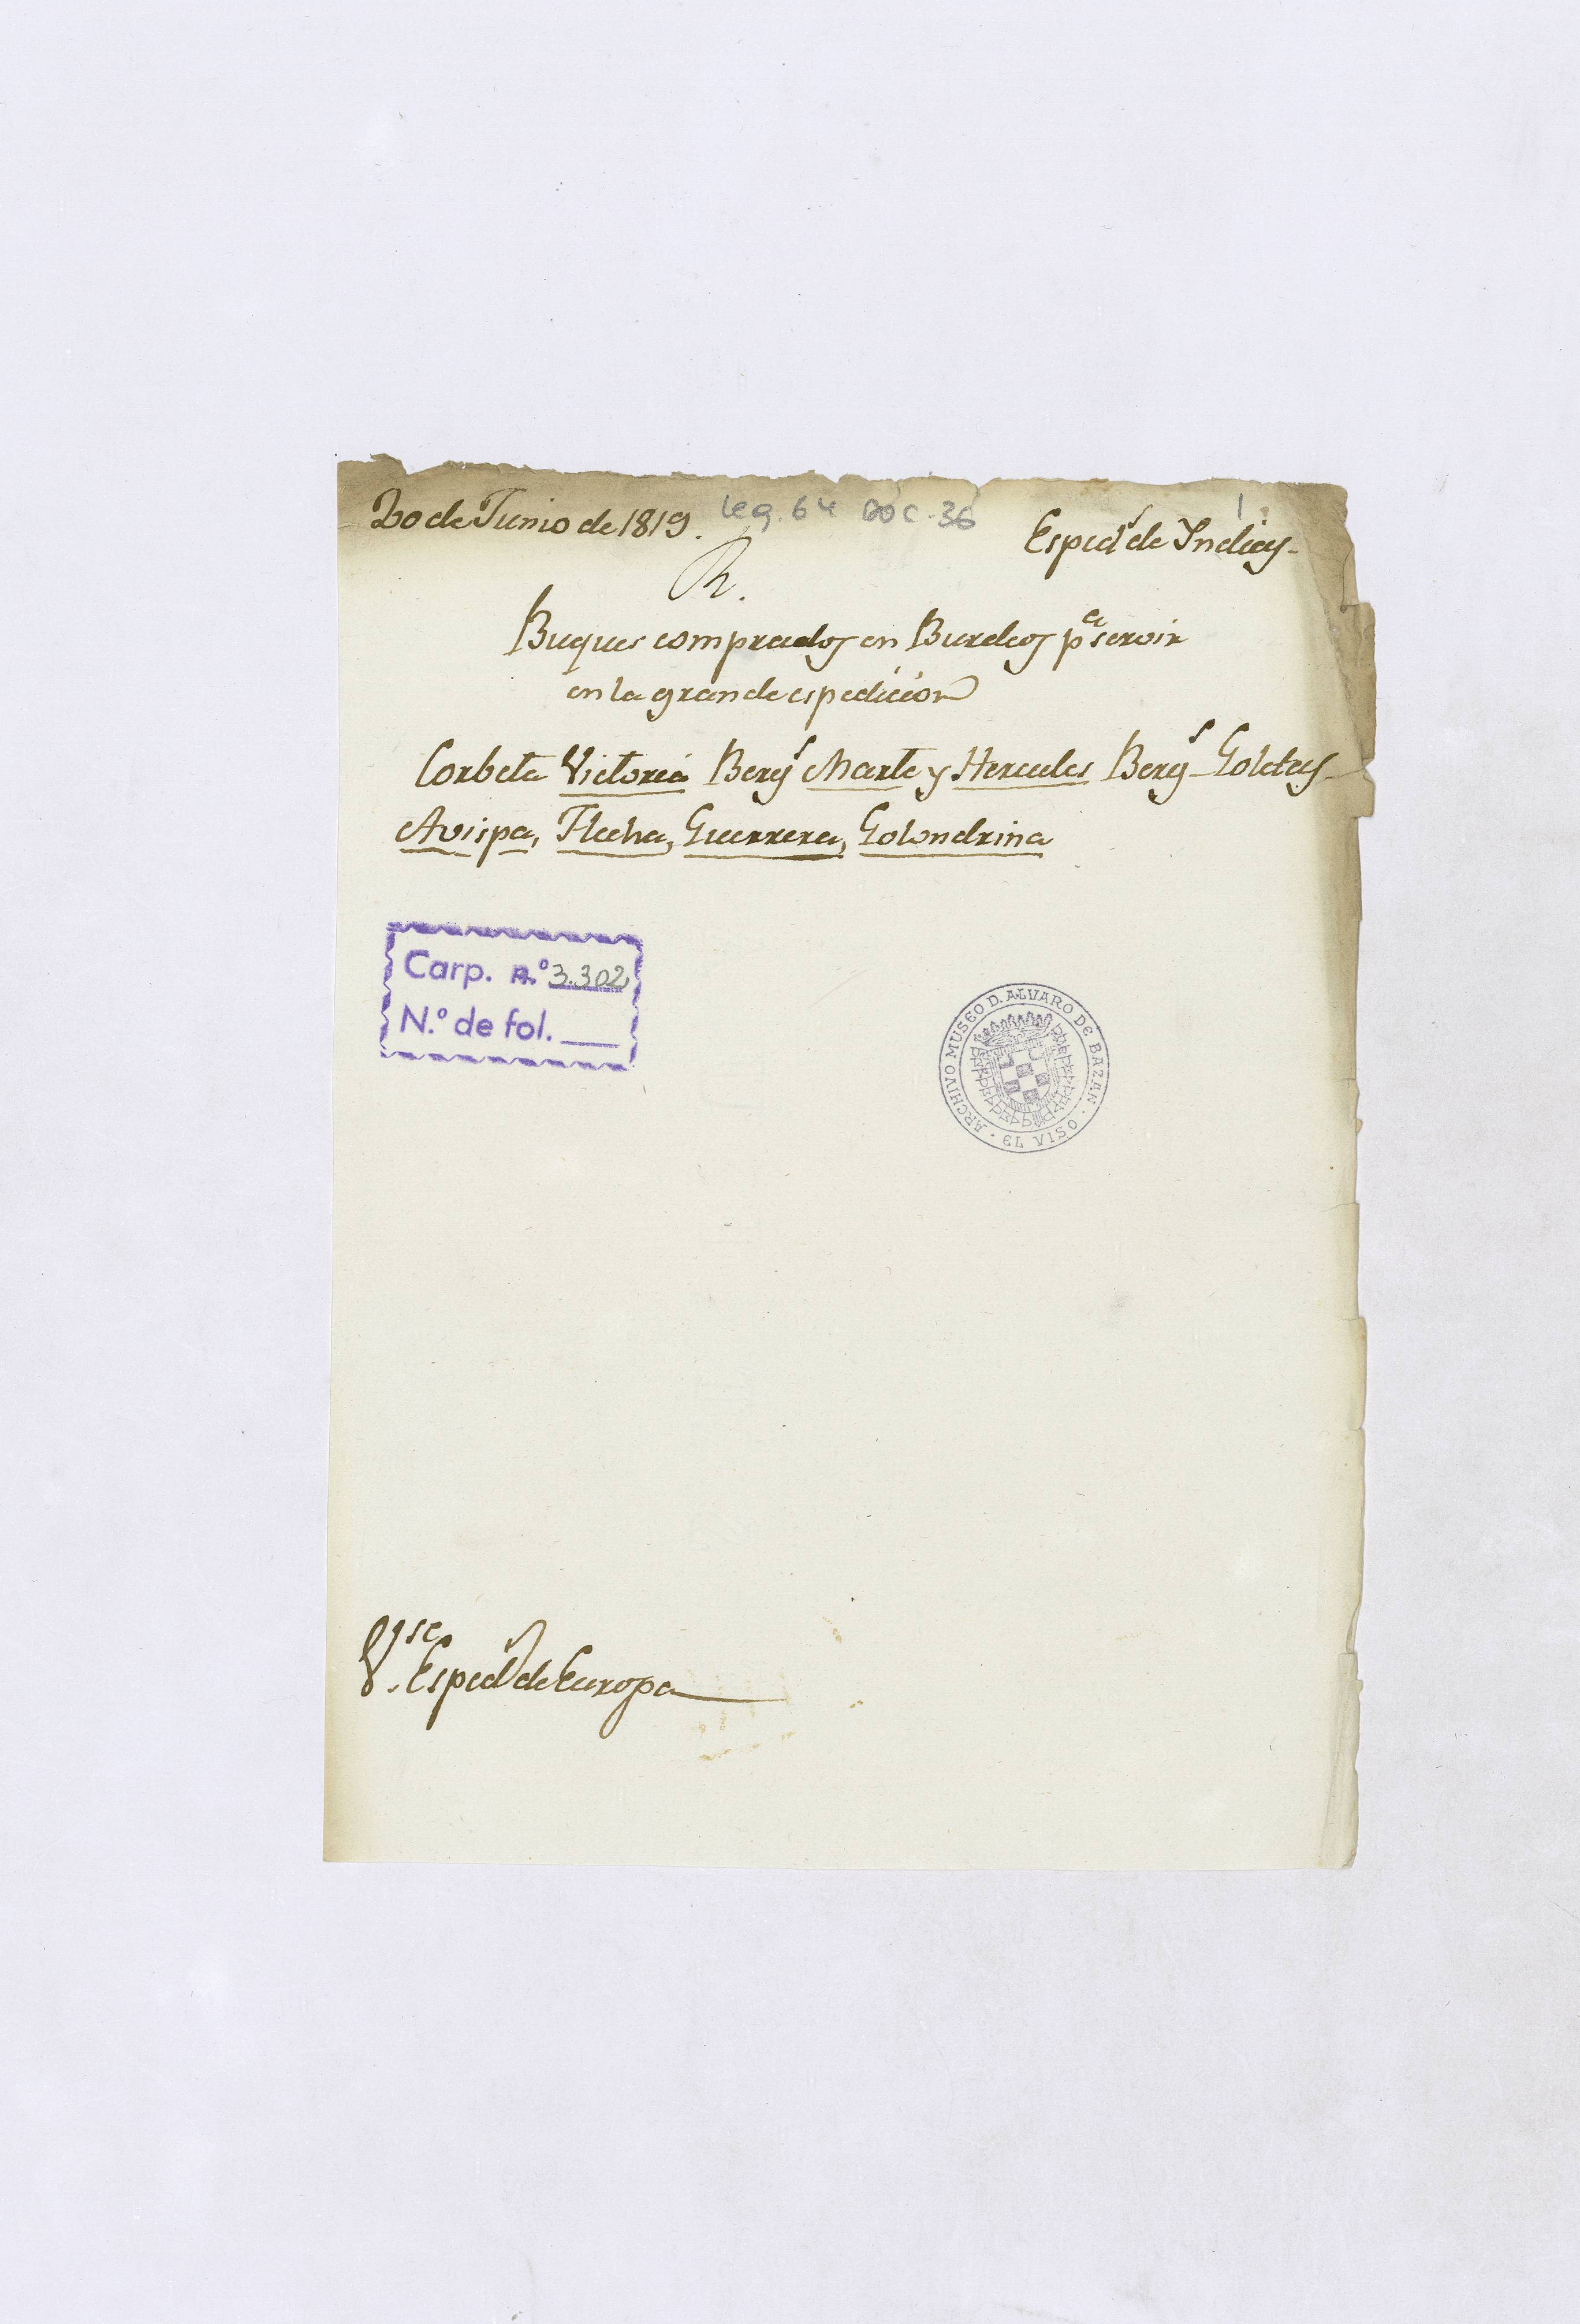 20 de Junio de 1819.
Leg. 64 Doc. 36
1
Esped.s de Indias
R.
Buques comprados en Burdeos p.a servir
en la grande espedicion
Corbeta Victoria Berg.s Marte y Hercules Berg.s Goletas
Avispa, Flecha, Guerrera, Golondrina
Carp. n.º 3.302
N.º de fol.
ARCHIVO MUSEO D. ALVARO DE BAZAN · EL VISO ·
V. Esped.s de Europa